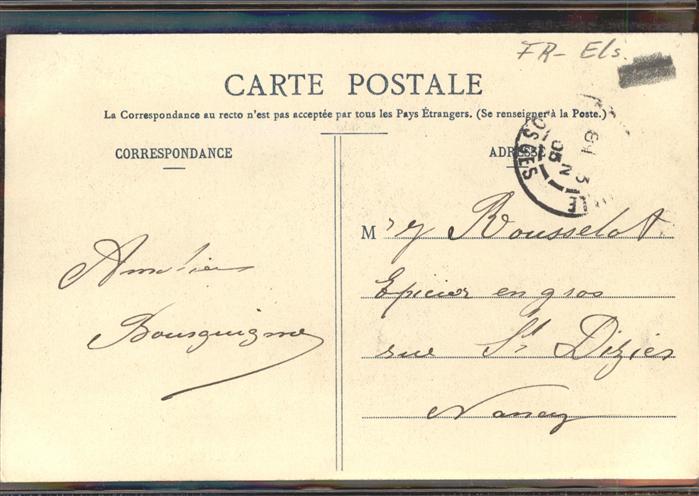 FR- Els.
CARTE POSTALE
La Correspondance au recto n'est pas acceptée par tous les Pays Étrangers. (Se renseigner à la Poste.)
CORRESPONDANCE
ADRESSE
M Rousselot
Epicier en gros
rue St Dizier
Nancy
Amitiés
05